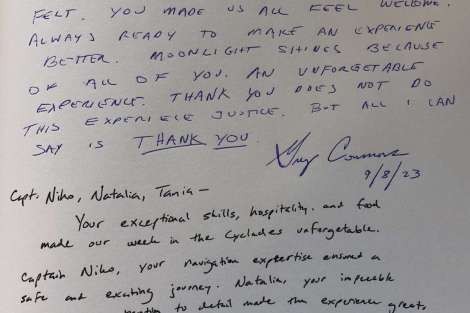 FELT. YOU MADE US ALL FEEL WELCOME.
ALWAYS READY TO MAKE AN EXPERIENCE
BETTER. MOONLIGHT SHINES BECAUSE
OF ALL OF YOU. AN UNFORGETABLE
EXPERIENCE. THANK YOU DOES NOT DO
THIS EXPERIELE JUSTICE. BUT ALL I CAN
SAY IS THANK YOU.
9/8/23
Capt. Niko, Natalia, Tania -
Your exceptional skills, hospitality. and food
made our week in the Cyclades unforgetable.
Captain Niko, your navigation expertise ensured a
safe and exciting journey. Natalia, your impecable
to detail made the experience great,